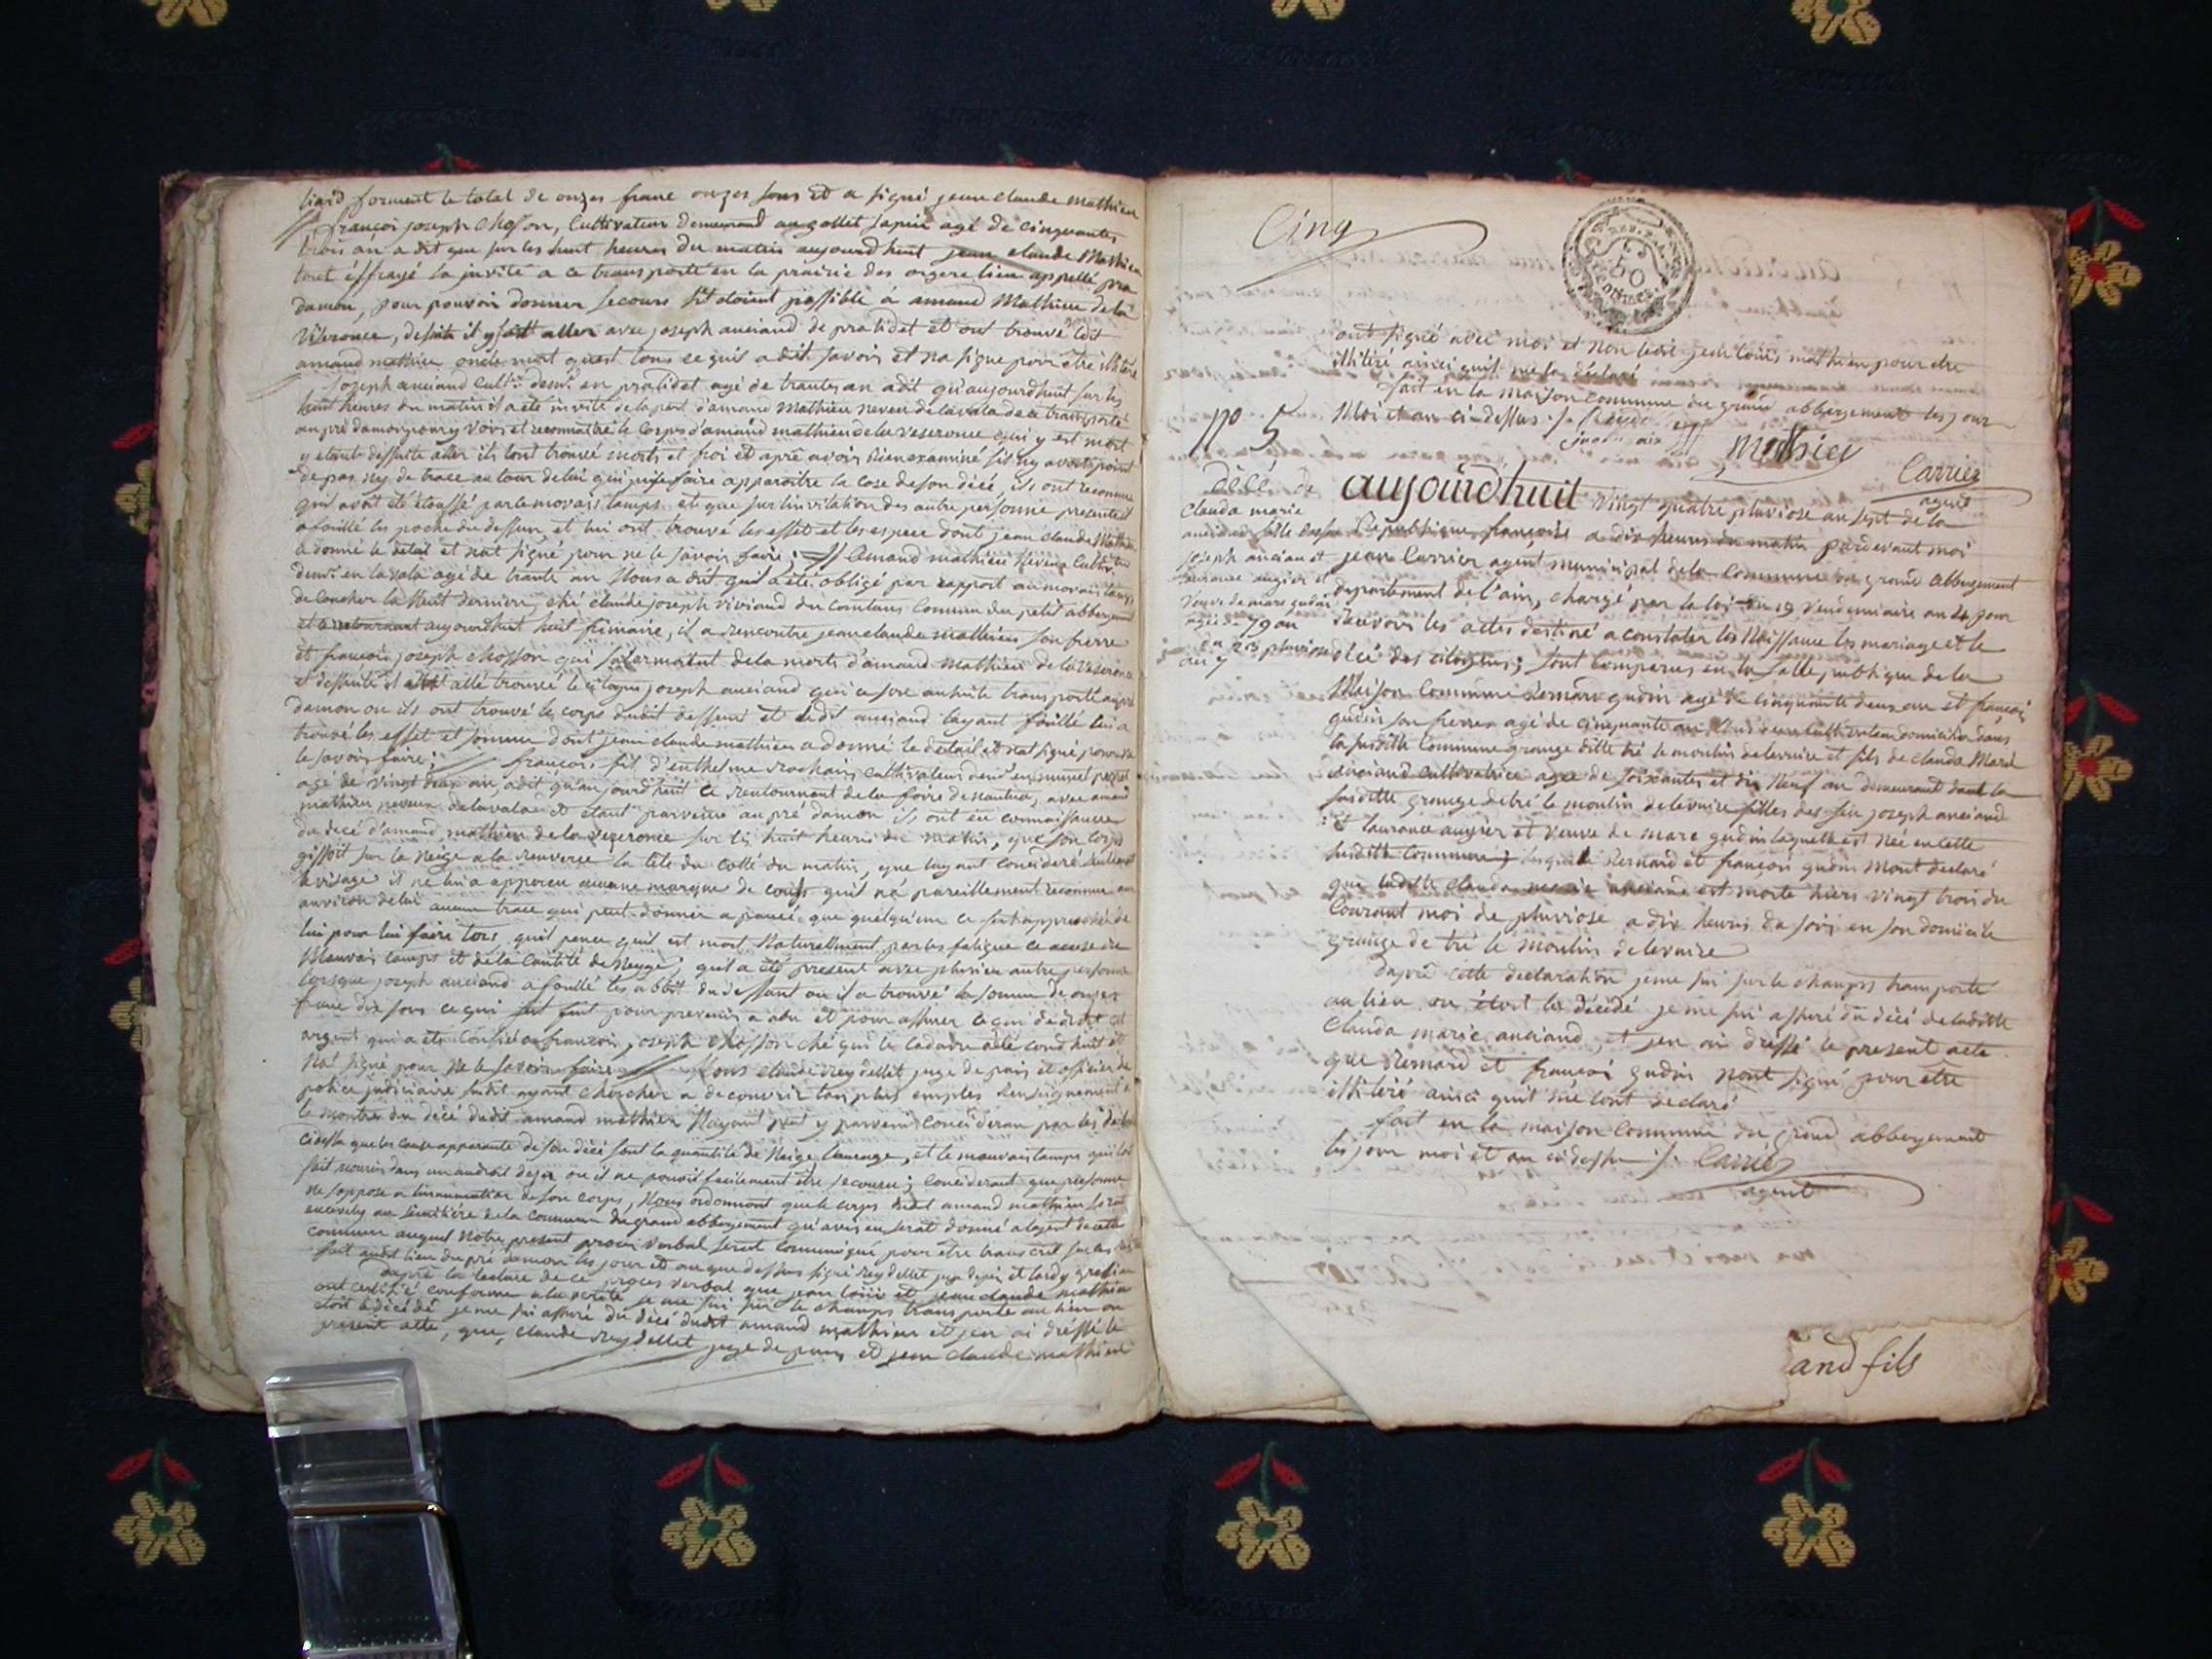 liard forment le total de onzes franc onzes sous et a signé jean claude mathieu
françoi joseph Chosson, Cultivateur demeurand au gollet sapin agé de cinquantes
trois an a dit que sur les huit heures du matin aujourdhuit jean claude Mathieu
tout éffrayé la invité a ce transporté en la prairie des orgere lieu appellé pra
damon, pour pouvoir donner secours sit étoient possible á amand Mathieu dela
Veseronce, desuite il y sont aller avec joseph anciand de pralidet et ont trouvé ledit
amand mathieu mort quest tous ce quil a dit savoir et na signe pour être illiteré
joseph anciand cultr. demt. en pralidet agé de trantes an a dit qu'aujourdhuit sur les
huit heures du matin il a été invité delapart d'amand Mathieu neveu delavala de ce transporté
au pré damon pour y voir et reconnaitre le corps d'amand mathieu dela veseronce qui y est mort
y etant dessuite aller ils lont trouvé morts et froi et aprê avoir bien examiné sil ny avoit point
de pas ny de trace autour de lui qui puisse faire apparoitre la cose de son décé, ils ont reconnu
quil avoit été étouffé par le movais tamps et que sur linvitation des autre personne presente il
a fouillé les poche du deffun, et lui ont trouvé les effet et les espece dont jean claude Mathieu
a donné le détail et nat signé pour ne le savoir faire; amand mathieu Neveux Cultr.
demt. en la vala agé de trante an Nous a dit quil a été obligé par rapport au movais tamps
de coucher la Nuit derniere, ché claude joseph viviand du comtans Commune du petit abbergement
et a retournant aujourdhuit huit frimaire, il a rencontre jean claude mathieu son frerre
et françois joseph chosson qui linformoient dela morts d'amand mathieu de la veseronce
et dessuite il allé trouvé le citoyen joseph anciand qui ce sont ensuite transporté au pré
damon ou ils ont trouvé le corps dudit deffunt et ledit anciand layant fouillé lui a
trouvé les effet et somme dont jean claude mathieu a donné le détail et nat signé pour ne
le savoir faire; françois fil d'enthelme Rochaix cultivateur demt.
agé de vingt deux an, a dit qu'aujourdhuit ce rentournant de la foire de nantua, avec amand
mathieu neveux delavala et étant parvenu au pré damon ils ont eu connaissance
du decé d'amand mathieu de la vezeronce sur les huit heures du matin, que son corps
gissoit sur la neige a la renverse la tête du cotté du matin, que layant concideré seulement
le visage il ne lui a apperçu aucune marque de coups quil na pareillement reconnu aux
anviron de lui aucun trace qui peut donner a pancé que quelqu'un ce soit approché de
lui pour lui faire tors, quil pence quil est mort Naturellement par les fatigue ce acuse du
Mauvais tamps et dela cantité de Neyge, quil a été present avec plusieu autre personne
lorsque joseph anciand a fouillé les abbit du deffunt ou il a trouvé la somme de onzes
franc dix sous ce qui fut fait pour prevenir a abu et pour assurer a qui de droit cet
argent qui a été confié a françoi joseph chosson ché qui le cadavre a été conduit et
na signé pour ne le savoir faire Nous claude reydellet juge de paix et officier de
police judiciaire sudit ayant chercher a decouvrir tan plus emples Renseignement
le montre du décé dudit amand mathieu Nayant peut y parvenir concideran par les
cidessu que les cause apparante de son décé sont la quantité de Neige tombée, et le mauvais tamps qui lont
fait mourir dans un androit deser ou il ne pouvoit facilement être secouru; concidérant que personne
ne soppose a linnumation de son corps, Nous ordonnont que le corps dudit amand mathieu serat
encevely au simitiére dela commune du grand abbergement qu'avis en serat donné a lagent de cette
commune auquel Notre present procé verbal serat communiqué pour être transcrit sur les
fait audit lieu du pré damon les jour et an que dessus signé reydellet juge depaix et tardy greffier
Daprê la lecture de ce proces verbal que jean louis et jean claude mathieu
ont certifié conforme a la verité je me sui sur le champs transporté au lieu ou
etoit le décédé je me sui assuré du décé dudit amand mathieu et jen ai dréssé le
present acte, que claude reydellet juge de paix et jean claude mathieu
Cinq
REP. FRA.
50
ont signé avec moi et non ledit jean louis mathieu pour etre
illitéré ainci quil me la déclaré
fait en la maison commune du grand abbergement les jour
Moi et an ci-dessus ./. Reydellet
juge paix
Mathieu
Carrier
agent
No 5
décé de
Clauda marie
anciand fille de feu
joseph anciand et
laurance augier et
veuve de marc gudin
agée de 79 an
du 23 pluviose
an 7
aujourdhuit vingt quatre pluviose an sept de la
Republique françoise a dix heures du matin pardevant moi
jean Carrier agent municipal dela commune du grand abbergement
departement de l'ain, chargé par la loi du 19 vendemiaire an 4 pour
recevoir les actes destiné a constater les Naissance les mariage et le
décé des citoyens; sont comparus en la salle publique de la
Maison commune Bernard gudin agé de cinquante deux an et françoi
gudin son frerre agé de cinquante an tous deux cultivateur domicilié dans
la susditte commune grange ditte tré le moulin delevaire et fils de clauda Marie
anciand cultivatrice agée de soixantes et dix Neuf an demeurant dans la
susditte grange de tré le moulin delevaire filles des feu joseph anciand
et laurance augier et veuve de marc gudin laquelle est Née en cette
susditte commune; lesquels Bernard et françoi gudin Mont declaré
que laditte clauda marie anciand est morte hiers vingt trois du
Courant moi de pluviose a dix heures du soir en son domicile
grange de tré le moulin delevaire
Daprê cette declaration je me sui sur le champs transporté
au lieu ou étoit la décédé je me sui assuré du décé de laditte
Clauda marie anciand, et jen ai dréssé le present acte
que Bernard et françoi gudin nont signé pour etre
illitéré ainci quil me lont declaré
fait en la maison commune du grand abbergement
les jour moi et an cidessu ./. Carrier
agent
and fils